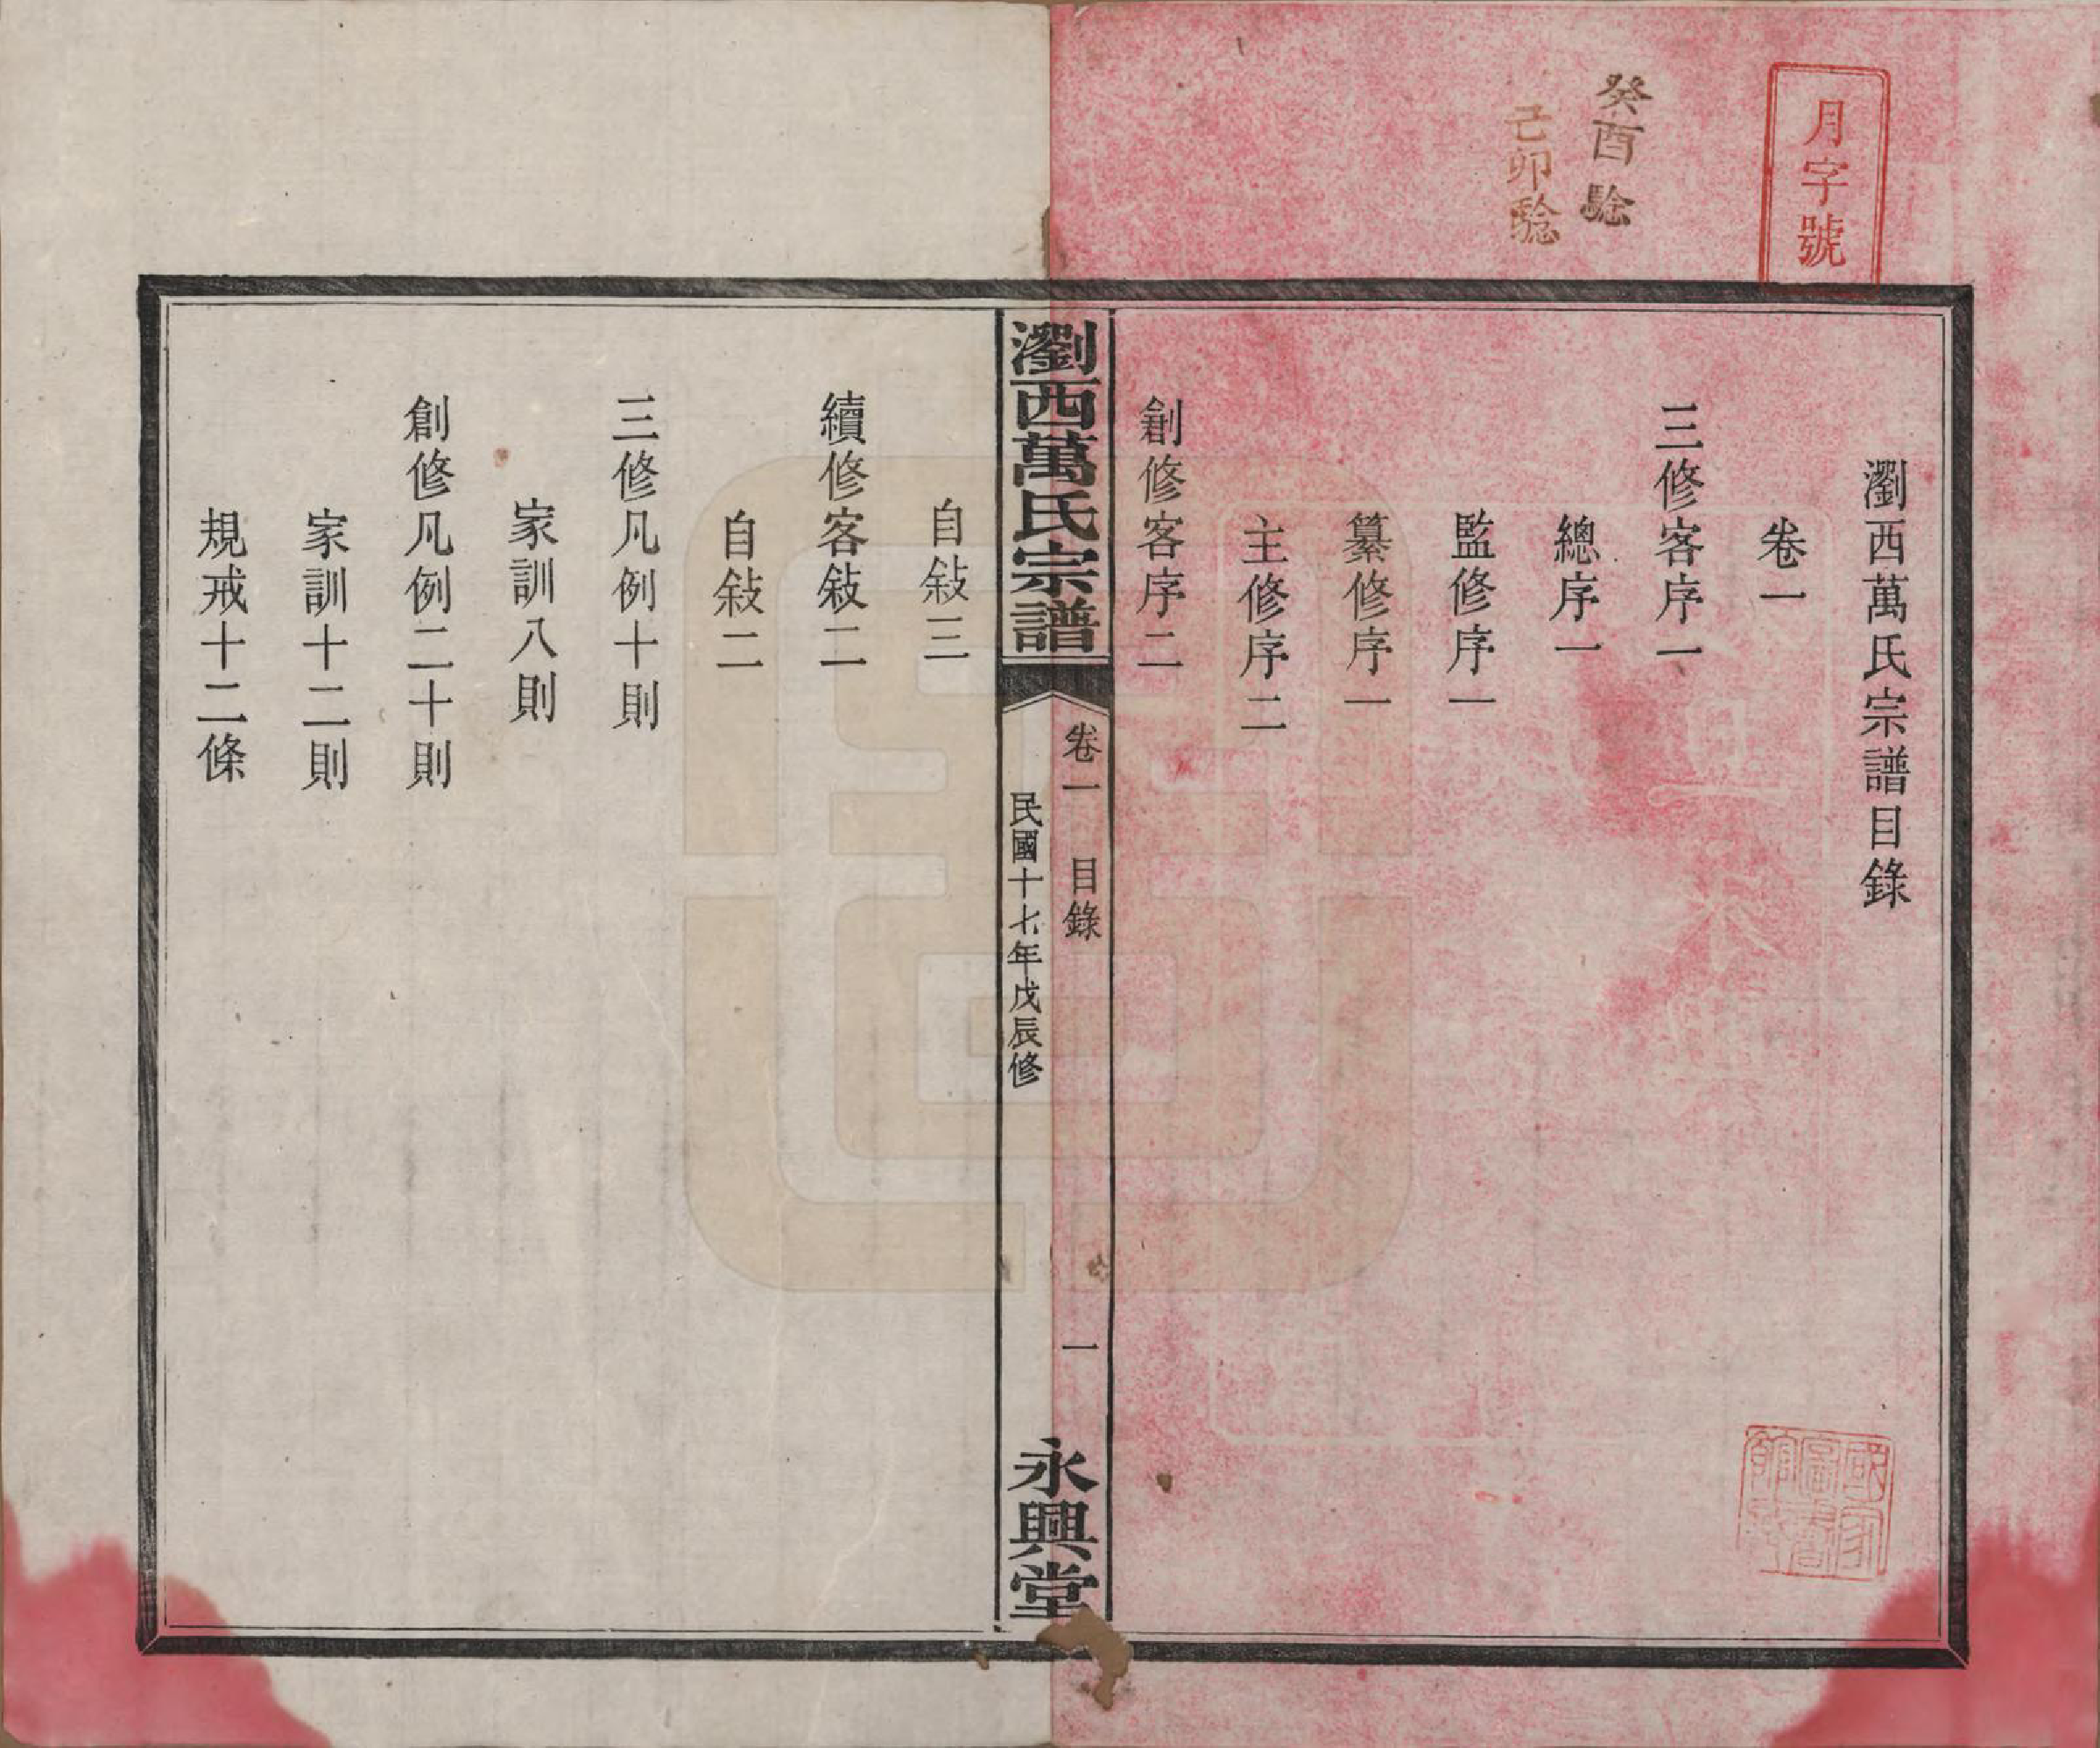 月字號
癸酉騐
己卯騐
瀏西萬氏宗譜目錄
卷一
三修客序一
總序一
監修序一
纂修序一
主修序二
創修客序二
瀏西萬氏宗譜
卷一 目錄 一
民國十七年戊辰修
永興堂
自敍三
續修客敍二
自敍二
三修凡例十則
家訓八則
創修凡例二十則
家訓十二則
規戒十二條